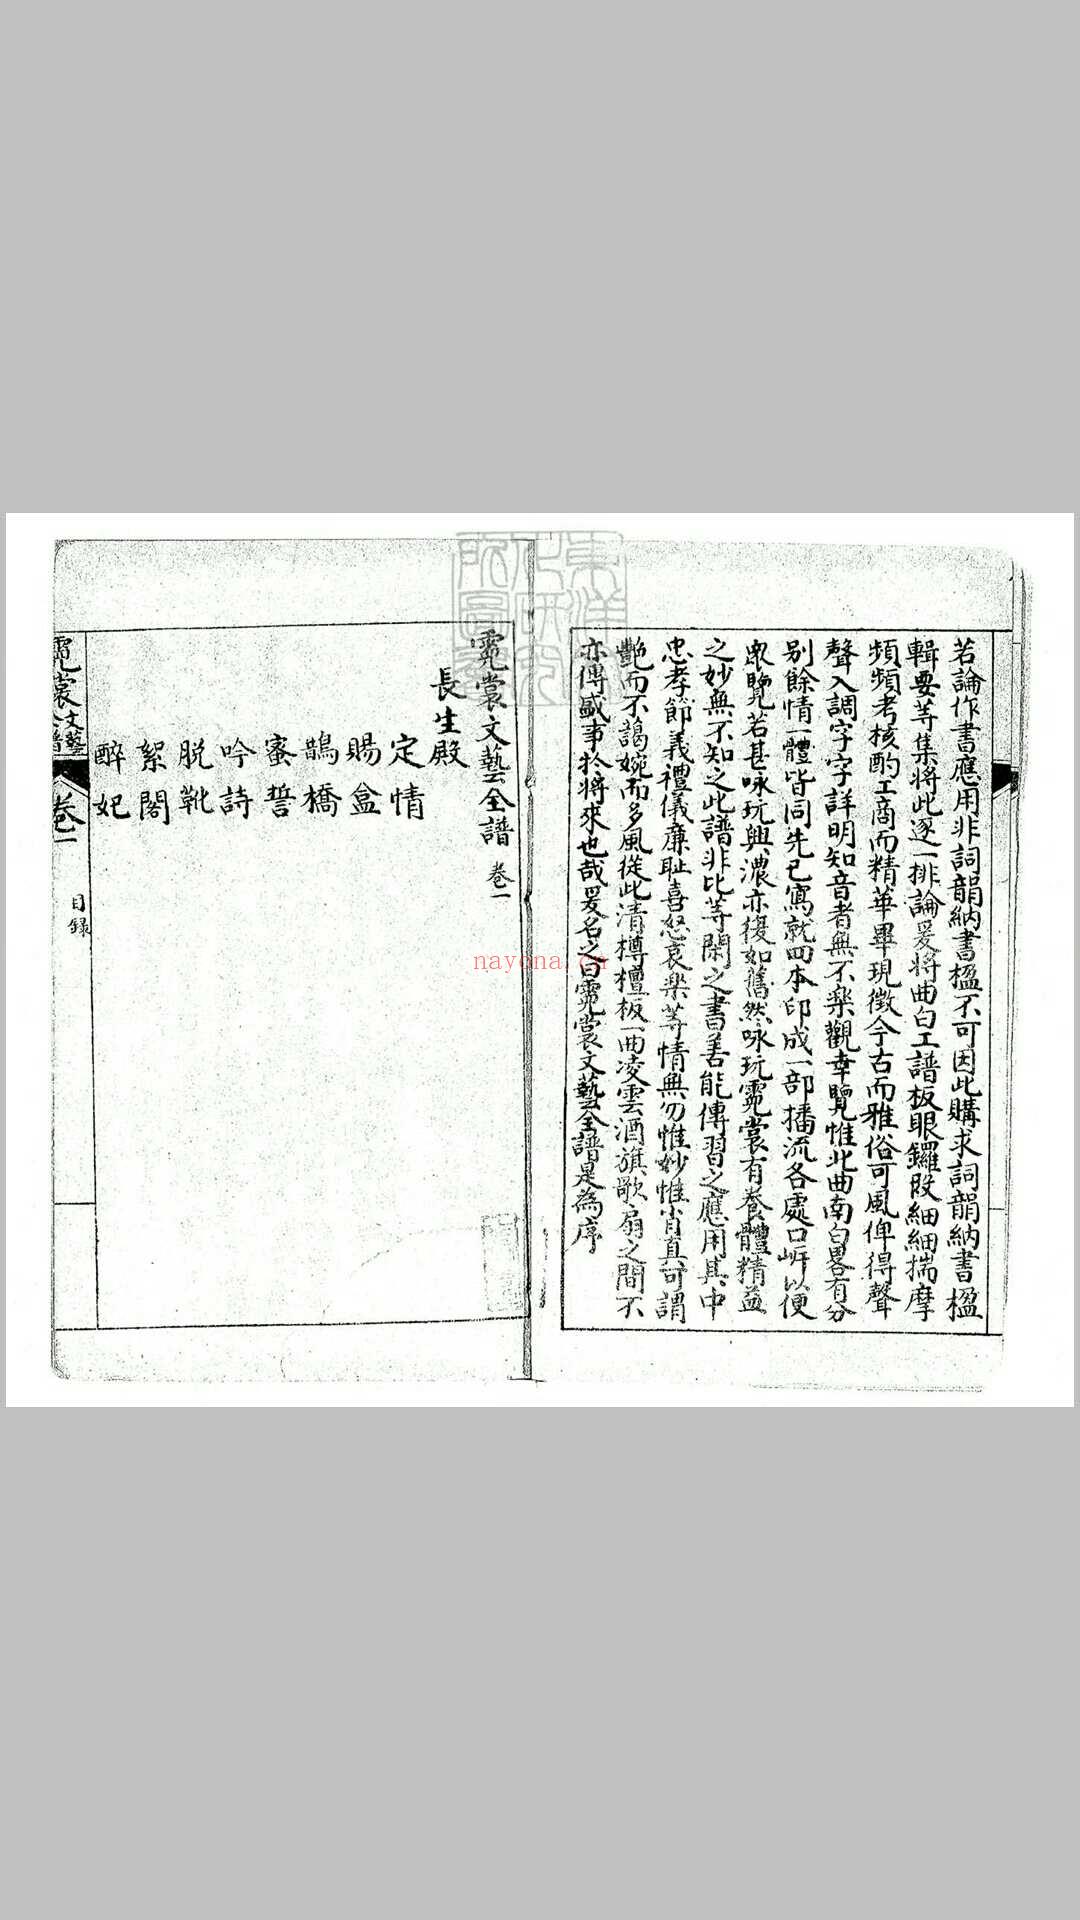 若論作書應用非詞韻納書楹不可因此購求詞韻納書楹
輯要等集將此逐一排論爰將曲白工譜板眼鑼段細細揣摩
頻頻考核酌工商而精華畢現徵今古而雅俗可風俾得聲
聲入調字字詳明知音者無不樂觀幸覽惟北曲南白畧有分
別餘情一體皆同先已寫就四本印成一部播流各處口岍以便
衆覽若甚咏玩興濃亦復如舊然咏玩霓裳有養體精益
之妙無不知之此譜非比等閑之書善能傳習之應用其中
忠孝節義禮儀廉耻喜怒哀樂等情無勿惟妙惟肖真可謂
艷而不藹婉而多風從此清樽檀板一曲凌雲酒旗歌扇之間不
亦傳盛事於將來也哉爰名之曰霓裳文藝全譜是為序
霓裳文藝全譜 卷一
長生殿
定情
賜盒
鵲橋
蜜誓
吟詩
脱靴
絮閣
醉妃
霓裳文藝全譜 卷一 目錄
nayona.cn